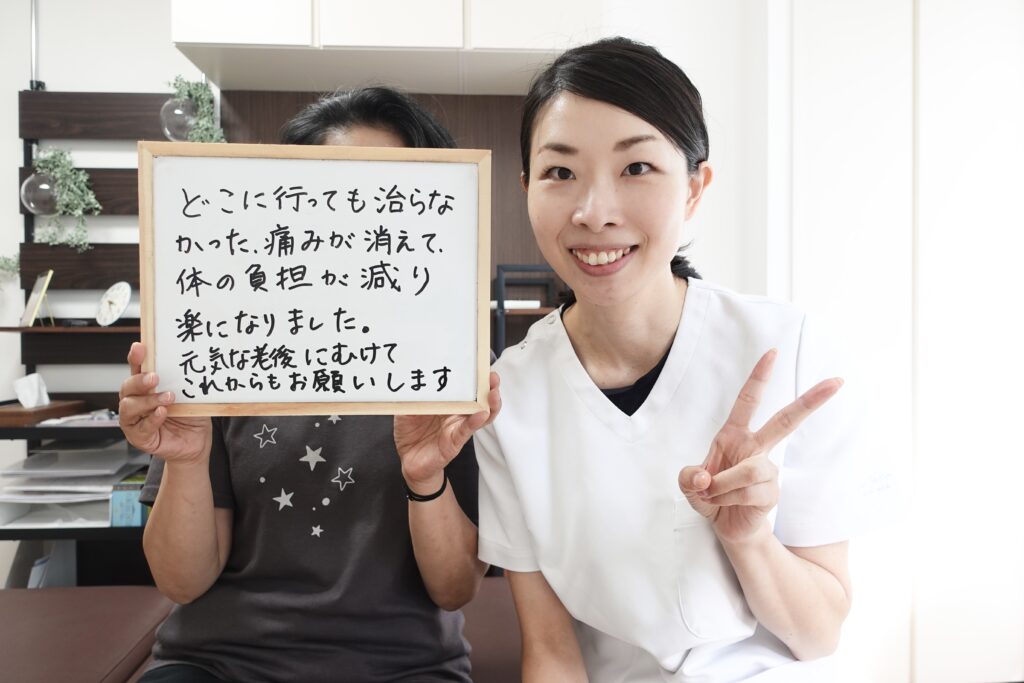 どこに行っても治らな
かった、痛みが消えて、
体の負担が減り
楽になりました。
元気な老後にむけて
これからもお願いします